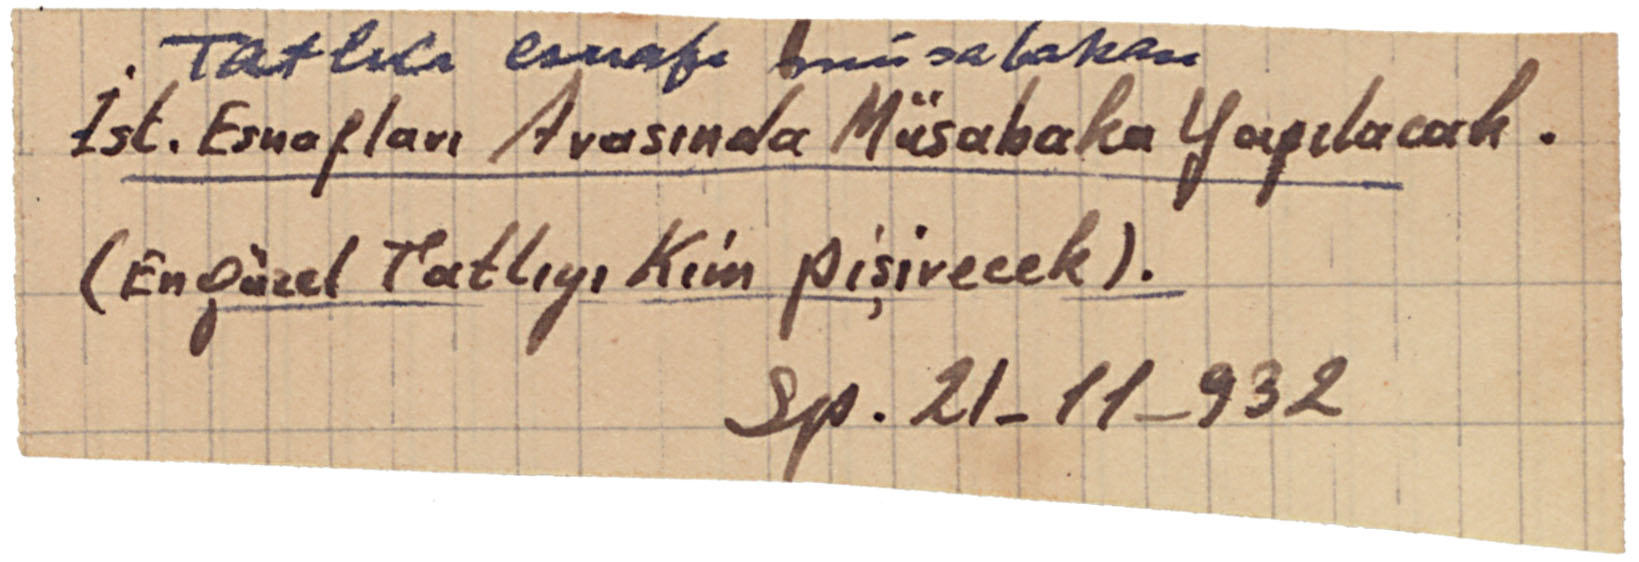 Tatlıcı esnafı müsabakası
İst. Esnafları Arasında Müsabaka Yapılacak.
(En güzel Tatlıyı Kim pişirecek).
Sp. 21-11-932